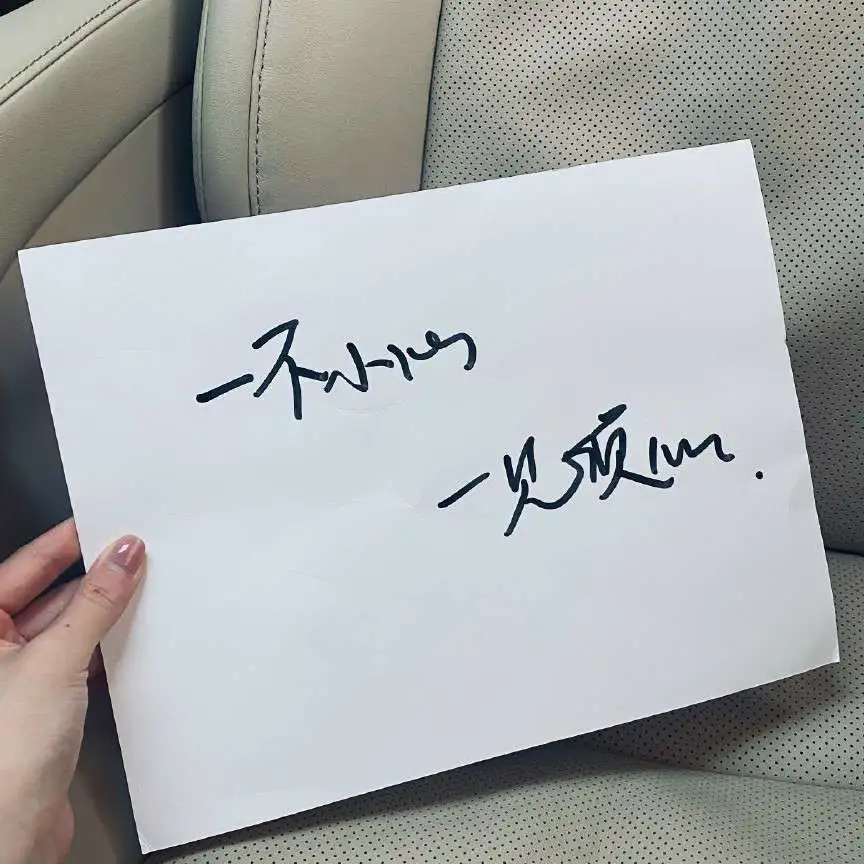 一不小心
一见倾心.